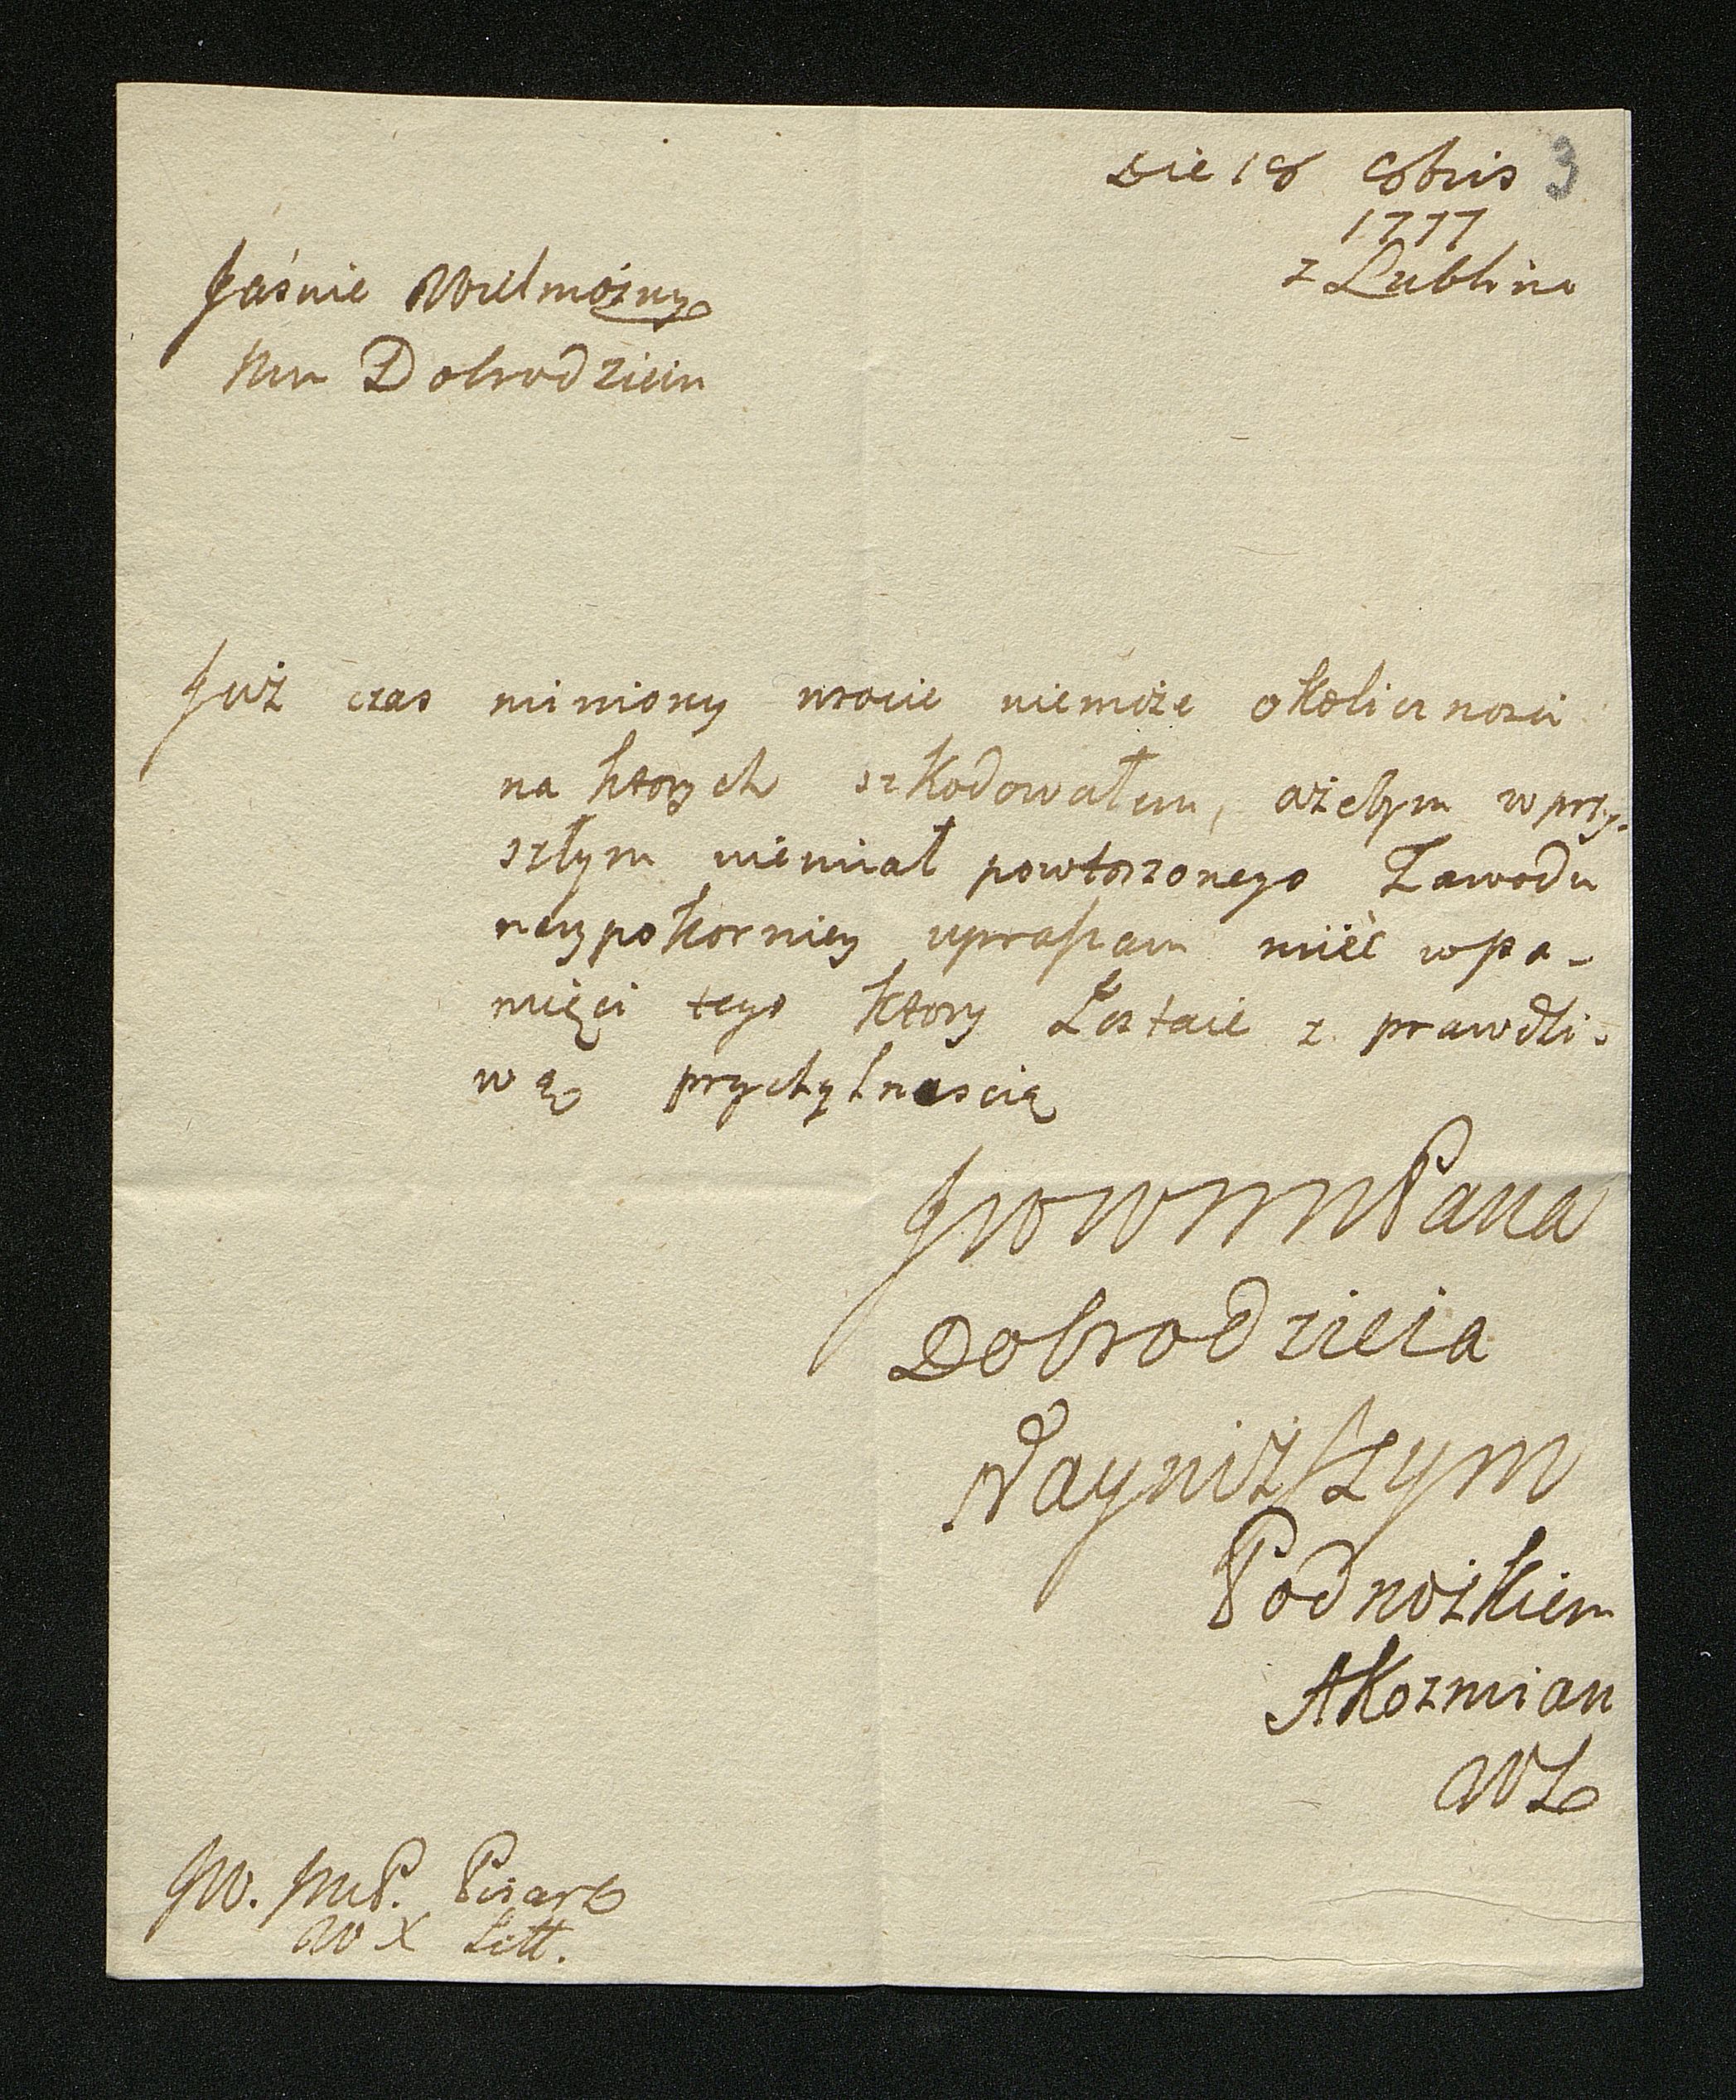 Die 18 8bris 3
1777
z Lublina
Jaśnie Wielmożny
Mm Dobrodzieiu
Już czas miniony wrocic niemoże okolicznosci
na ktorych szkodowałem, ażebym w przy-
szłym niemiał powtorzonego Zawodu
naypokorniey upraszam mieć w pa-
mięci tego ktory Zostaie z prawdzi-
wą przychylnoscią
JWoWMMPana
Dobrodzieia
Nayniższym
Podnożkiem
AKozmian
WL
JW. JmP. Pisarz
W X Litt.